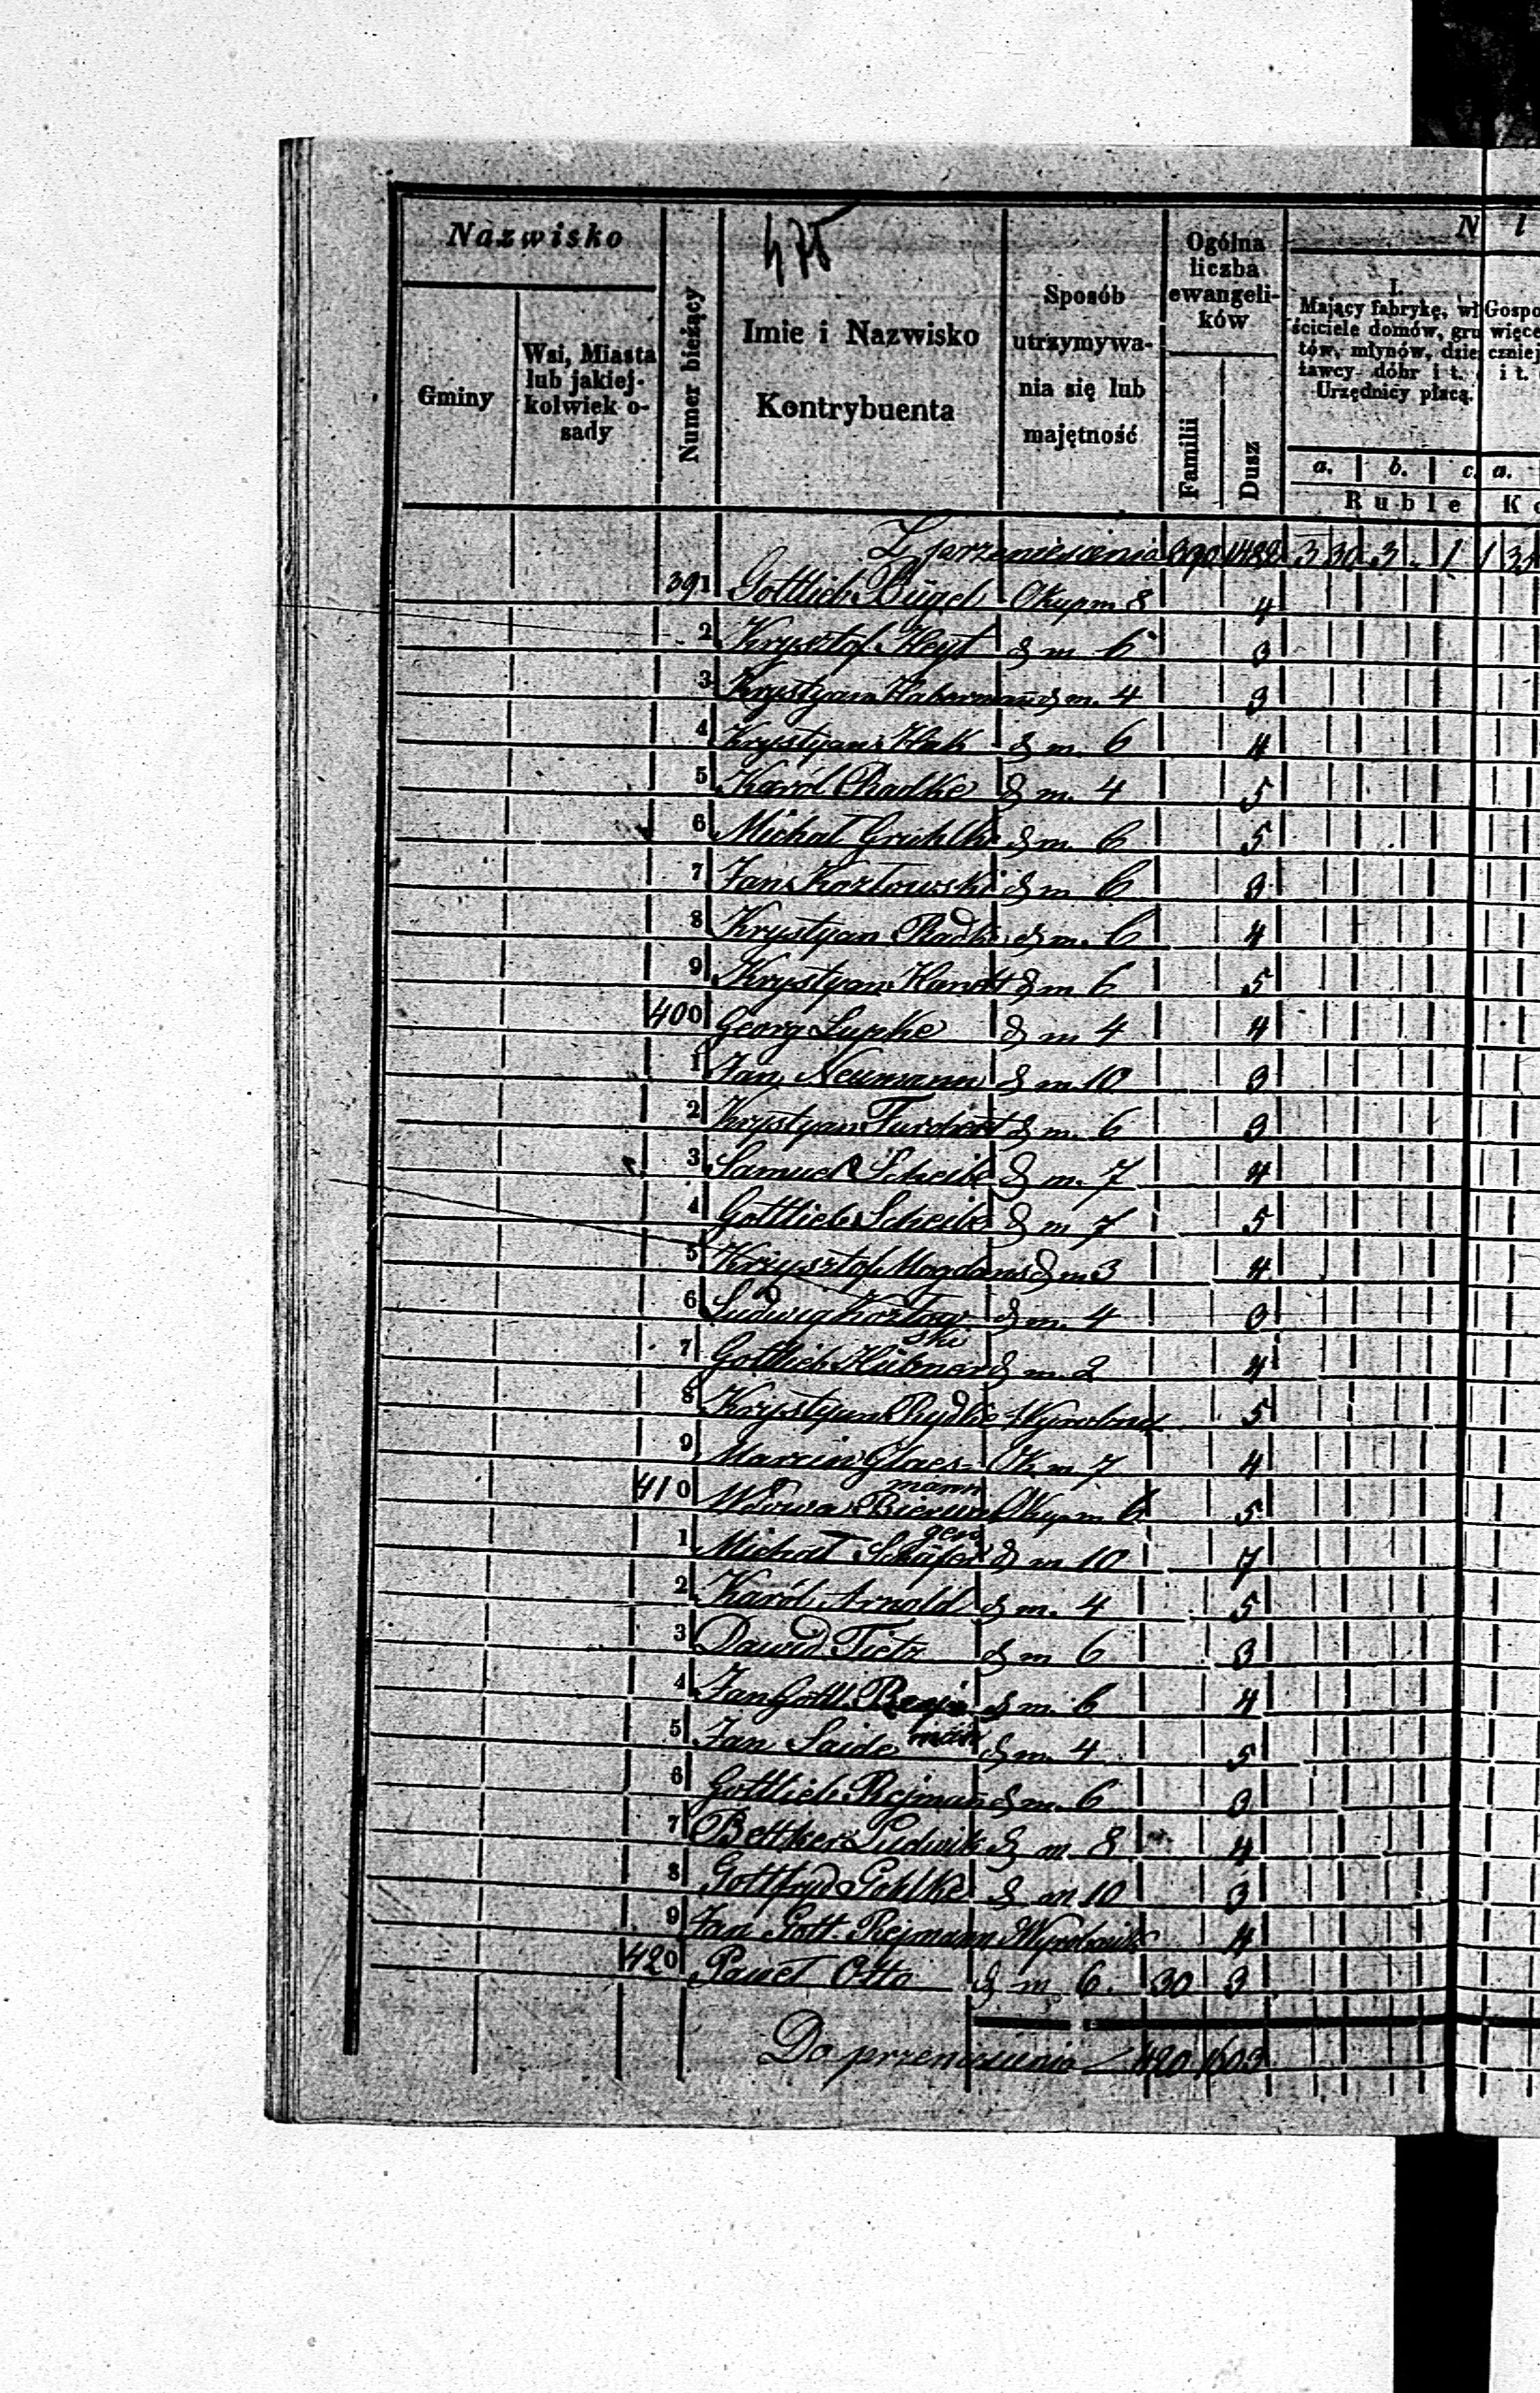 Nazwisko
Gminy
Wsi, Miasta
lub jakiej-
kolwiek o-
sady
Numer bieżący
Imie i Nazwisko
Kontrybuenta
Sposób
utrzymywa-
nia się lub
majętność
Ogólna
liczba
ewangeli-
ków
Familii
Dusz
N
I.
Mający fabrykę, wł
ściciele domów, gru
tów, młynów, dzie
ławcy dóbr i t.
Urzędnicy płacą.
a. b. c.
Ruble
Gospo
więce
czniej
i t.
a.
Z przeniesienia 390 1482 3 30 3 1 1 30
391 Gottlieb Bügel Okup m 8 4
2 Krysztof Heyt d m 6 3
3 Krystyan Haberman d m. 4 3
4 Krystyan Hak d m. 6 4
5 Karól Radke d m. 4 5
6 Michał d m. 6 5
7 Jan Kozłowski d m 6 3
8 Krystyan d m. 6 4
9 Krystyan d m 6 5
400 Georg Lupke d m 4 4
1 Jan Neumann d m 10 3
2 Krystyan d m. 6 3
3 Samuel d m. 7 4
4 Gottlieb d m 7 5
5 Krzysztof d m 3 4
6 Ludwig Kozłow d m. 4 3
ski
7 Gottlieb Hübner d m. 2 4
8 Krystyan 5
9 Marcin Glaes- Ok m 7 4
mann
410 Wdowa Okup m 6 5
gen
1 Michał Schäfer d m 10 7
2 Karól Arnold d m. 4 5
3 Dawid Tietz d m 6 3
4 Jan Gottl. d m. 6 4
man
5 Jan Saide d m. 4 5
6 Gottlieb Rejman d m. 6 3
7 Bettker Ludwik d m 8 4
8 Gottfryd Gohlke d m 10 3
9 Jan Gott. Rejmann Wyrobnik 4
420 Paweł Otto d m 6. 30 3
Do przeniesienia 420 1603